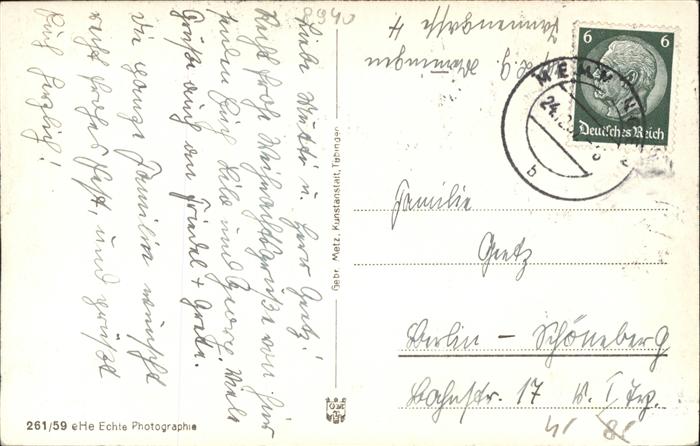 Liebe Mutti u. Herr Getz!
Recht frohe Weihnachtsgrüße von hier
senden Euch Lilo und Georg. Viele
Grüße auch an Friedel + Grete.
Die ganze Familie wünscht
recht frohes Fest, und grüßt
Euch herzlich!
Gebr. Metz, Kunstanstalt, Tübingen
261/59 eHe Echte Photographie
4
6 6
Deutsches Reich
24.12.
b
Familie
Getz
Berlin - Schöneberg
Bahnstr. 17 v. I Trp.